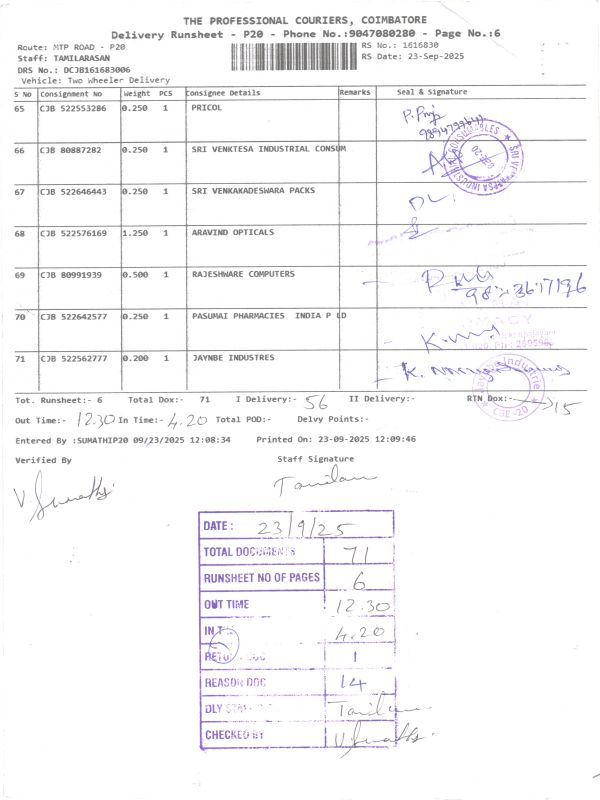 THE PROFESSIONAL COURIERS, COIMBATORE
Delivery Runsheet - P20 - Phone No.:9047080280 - Page No.:6
Route: MTP ROAD - P20
RS No.: 1616830
Staff: TAMILARASAN
RS Date: 23-Sep-2025
DRS No.: DCJB161683006
Vehicle: Two Wheeler Delivery
S No Consignment No Weight PCS Consignee Details Remarks Seal & Signature
65 CJB 522553286 0.250 1 PRICOL
66 CJB 80887282 0.250 1 SRI VENKTESA INDUSTRIAL CONSUM
67 CJB 522646443 0.250 1 SRI VENKAKADESWARA PACKS
68 CJB 522576169 1.250 1 ARAVIND OPTICALS
69 CJB 80991939 0.500 1 RAJESHWARE COMPUTERS
70 CJB 522642577 0.250 1 PASUMAI PHARMACIES INDIA P LD
71 CJB 522562777 0.200 1 JAYNBE INDUSTRES
Tot. Runsheet:- 6 Total Dox:- 71 I Delivery:- 56 II Delivery:- RTN Dox:- 15
Out Time:- 12.30 In Time:- 4.20 Total POD:- Delvy Points:-
Entered By :SUMATHIP20 09/23/2025 12:08:34 Printed On: 23-09-2025 12:09:46
Verified By Staff Signature
V. Sumathi
DATE : 23/9/25
TOTAL DOCUMENTS 71
RUNSHEET NO OF PAGES 6
OUT TIME 12.30
IN 4.20
1
REASON DOC 14
DLY
CHECKED BY V. Sumathi